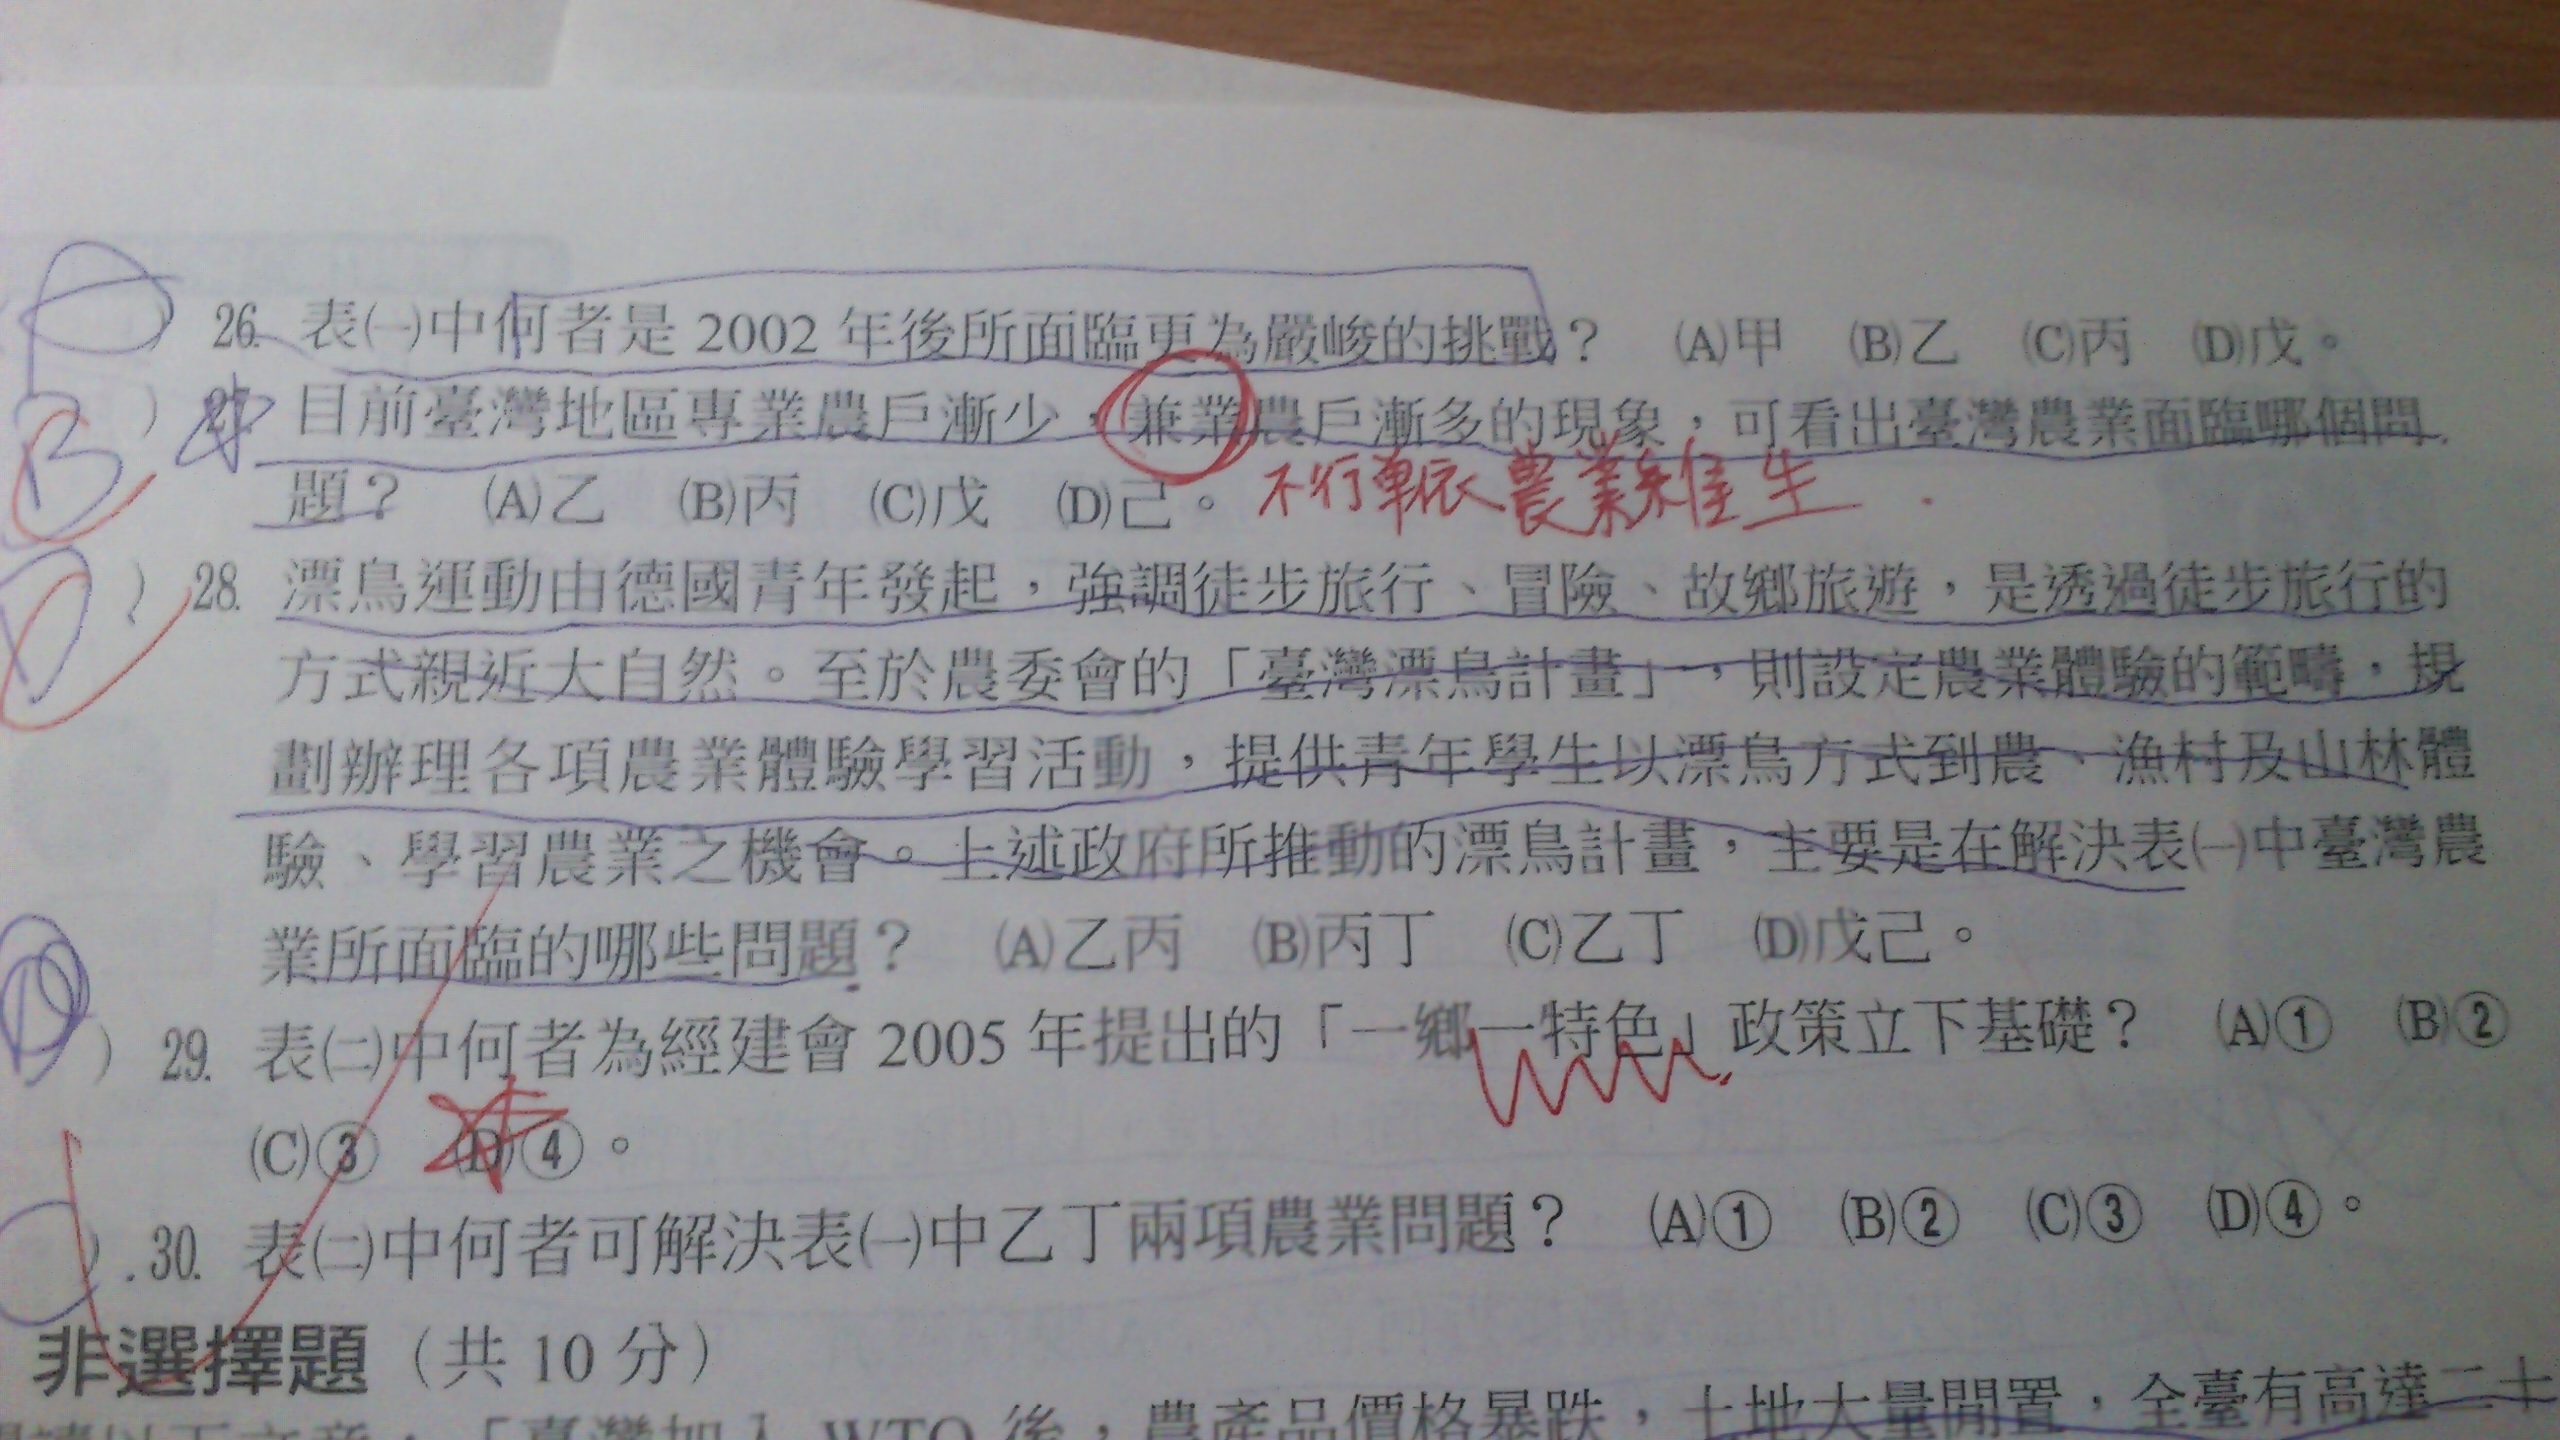 26. 表㈠中何者是2002年後所面臨更為嚴峻的挑戰？ (A)甲 (B)乙 (C)丙 (D)戊。
B ) 27. 目前臺灣地區專業農戶漸少，兼業農戶漸多的現象，可看出臺灣農業面臨哪個問
題？ (A)乙 (B)丙 (C)戊 (D)己。 不行單依農業維生
D ) 28. 漂鳥運動由德國青年發起，強調徒步旅行、冒險、故鄉旅遊，是透過徒步旅行的
方式親近大自然。至於農委會的「臺灣漂鳥計畫」，則設定農業體驗的範疇，規
劃辦理各項農業體驗學習活動，提供青年學生以漂鳥方式到農、漁村及山林體
驗、學習農業之機會。上述政府所推動的漂鳥計畫，主要是在解決表㈠中臺灣農
業所面臨的哪些問題？ (A)乙丙 (B)丙丁 (C)乙丁 (D)戊己。
) 29. 表㈡中何者為經建會2005年提出的「一鄉一特色」政策立下基礎？ (A)① (B)②
(C)③ (D)④。
) 30. 表㈡中何者可解決表㈠中乙丁兩項農業問題？ (A)① (B)② (C)③ (D)④。
非選擇題（共10分）
「臺灣加入WTO後，農產品價格暴跌，土地大量閒置，全臺有高達二十